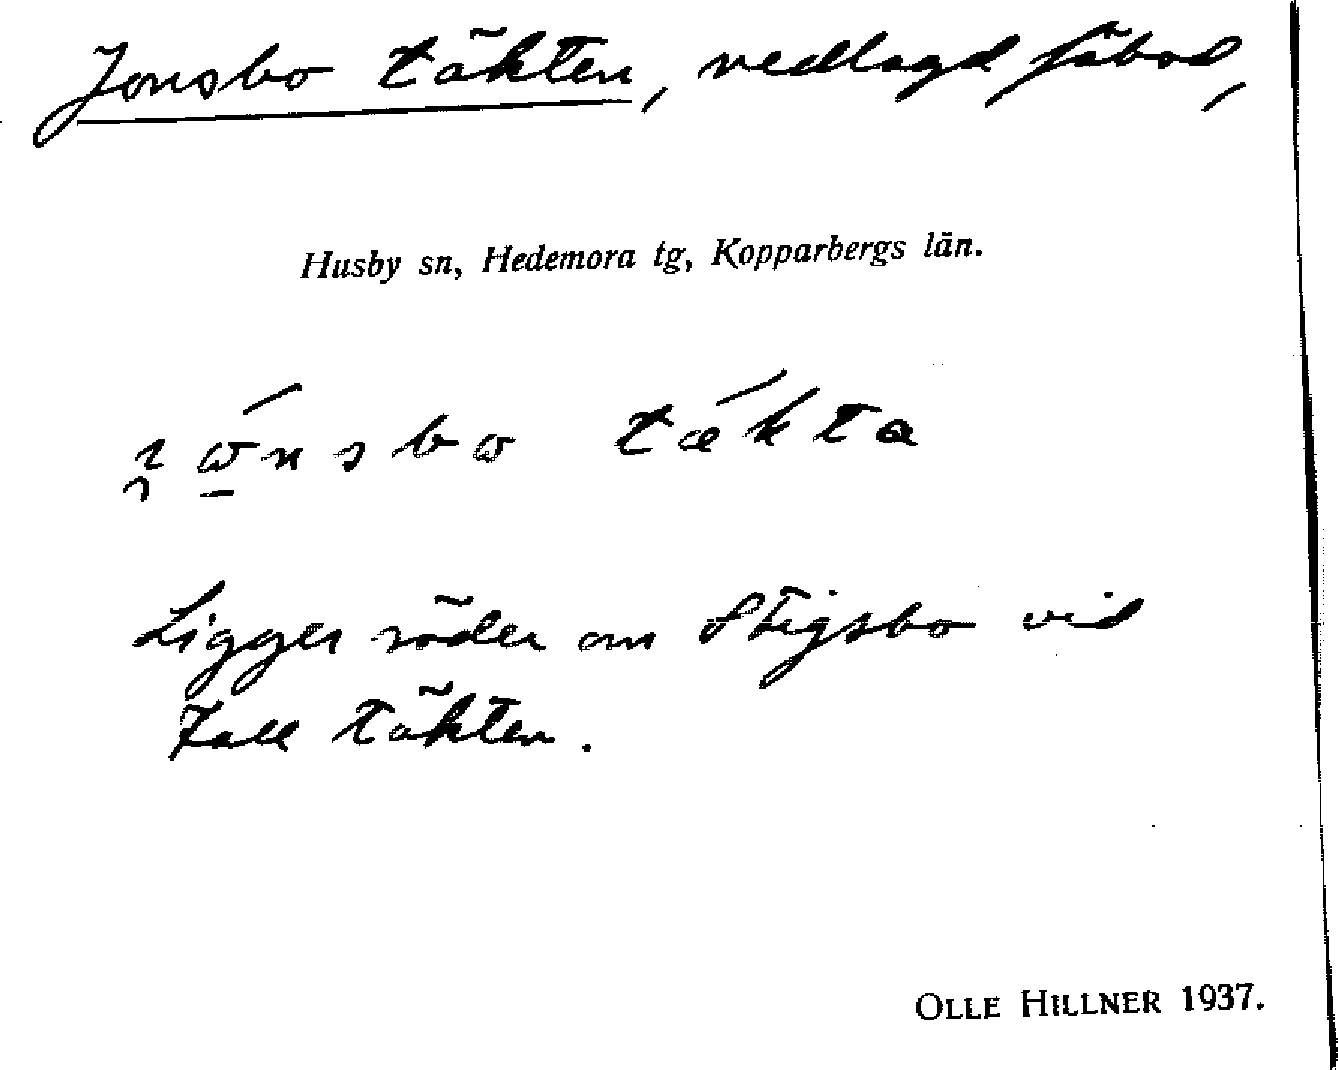 Jonsbo täkten, nedlagd fäbod,
Husby sn, Hedemora tg, Kopparbergs län.
Ligger söder om Stigsbo vid
Fall täkten.
OLLE HILLNER 1937.